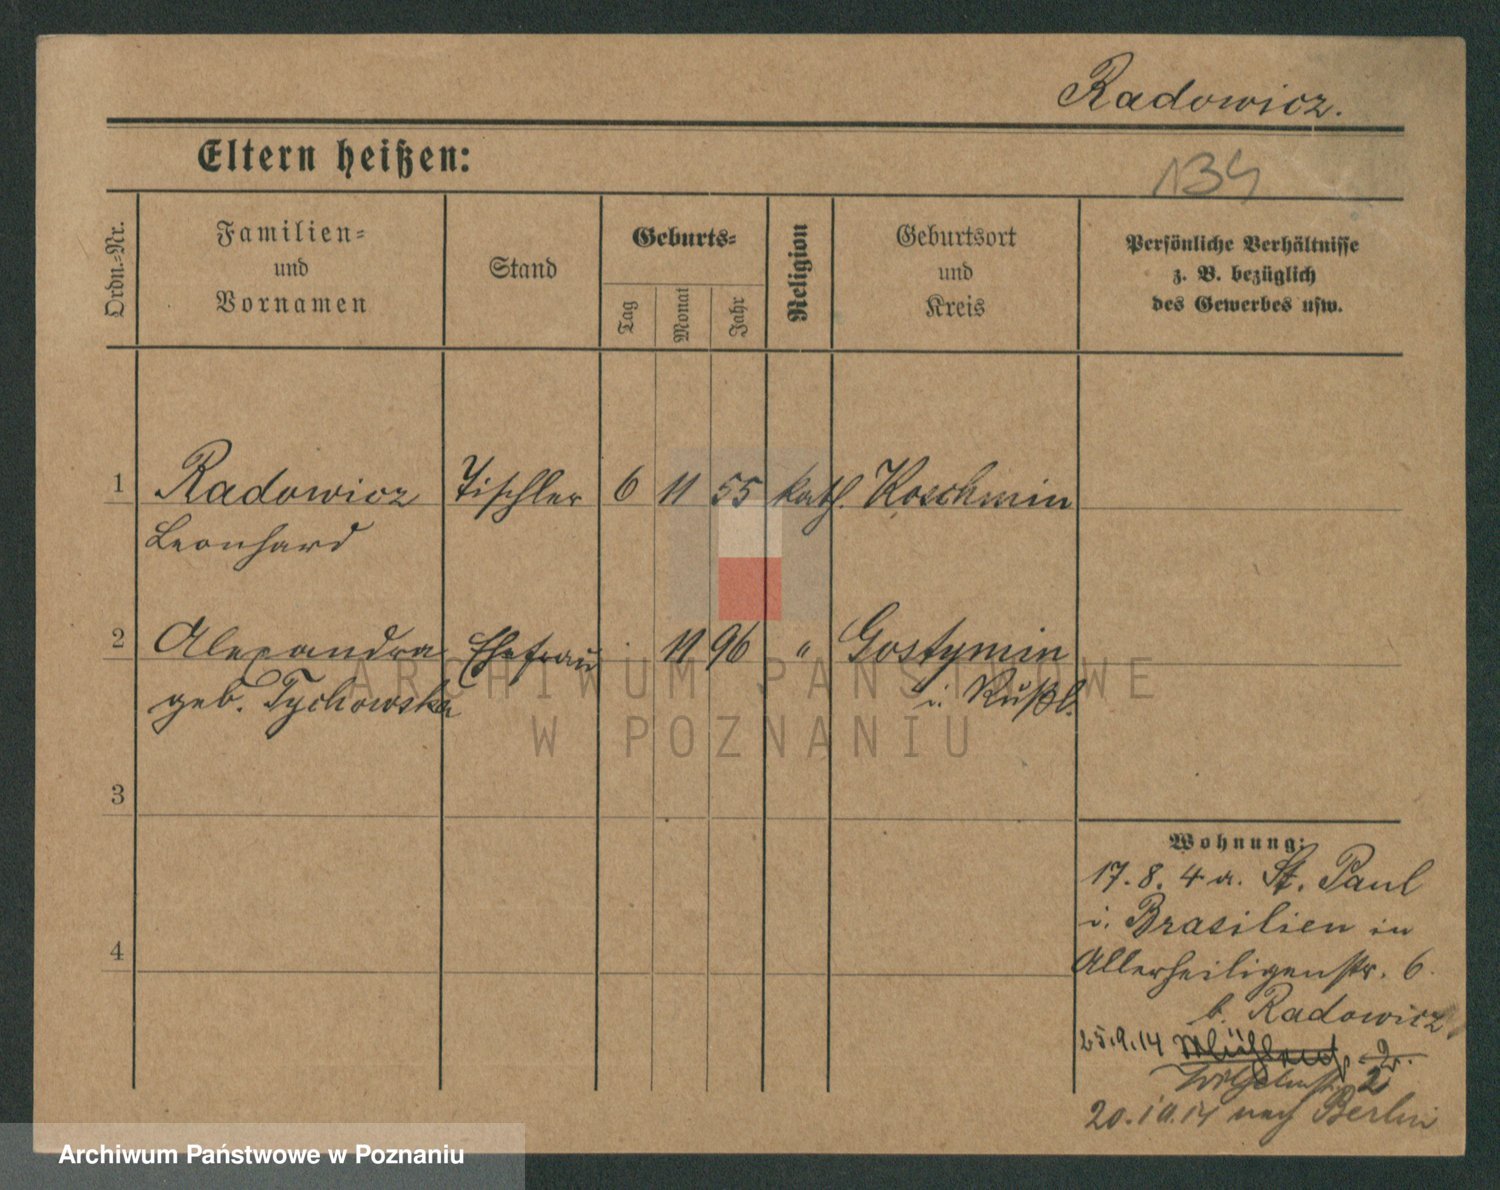 Radowicz.
Eltern heißen:
134
Ordn.-Nr.
Familien-
und
Vornamen
Stand
Geburts-
Tag
Monat
Jahr
Religion
Geburtsort
und
Kreis
Persönliche Verhältnisse
z. B. bezüglich
des Gewerbes usw.
1 Radowicz Tischler 6 11 55 kath. Koschmin
Leonhard
2 Alexandra Ehefrau . 11 96 " Gostymin
geb. Tychowska i. Rußl.
3
4
Wohnung:
17.8. 4 a. St. Paul
i. Brasilien in
Allerheiligenstr. 6.
b. Radowicz
25.9.14 2.
2
20.10.14 nach Berlin
ARCHIWUM PAŃSTWOWE
W POZNANIU
Archiwum Państwowe w Poznaniu